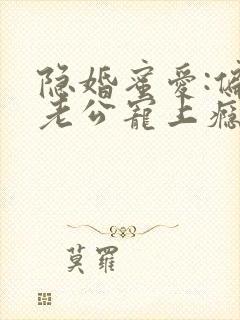 隐婚蜜爱:偏
老公宠上瘾
莫羅